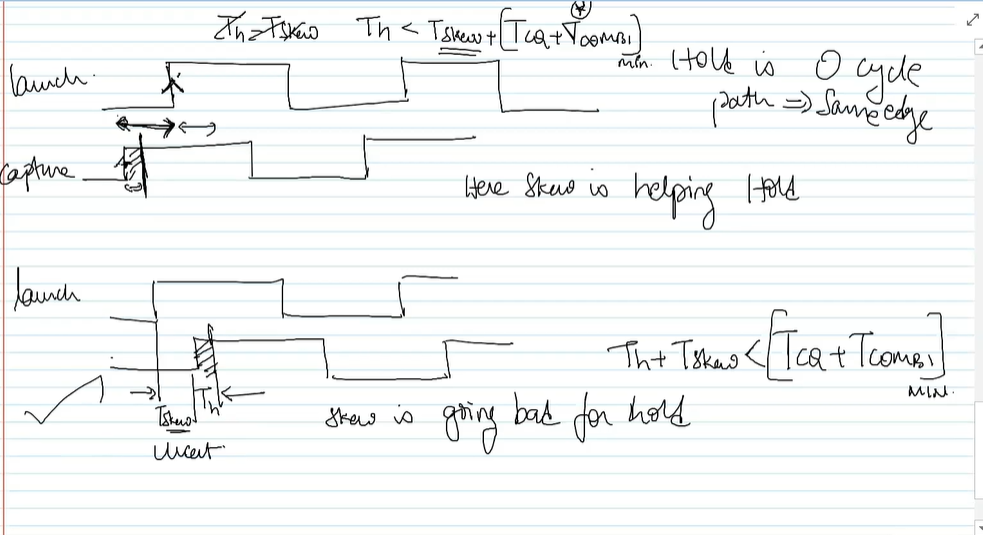 Th > Tskew Th < Tskew + [TCQ + TCOMBI] min.
launch.
Hold is 0 cycle
path => Same edge
Capture
Here Skew is helping Hold
launch
Th + Tskew < [TCQ + TCOMBI] MIN.
Tskew Th
Uncert.
skew is going bad for hold